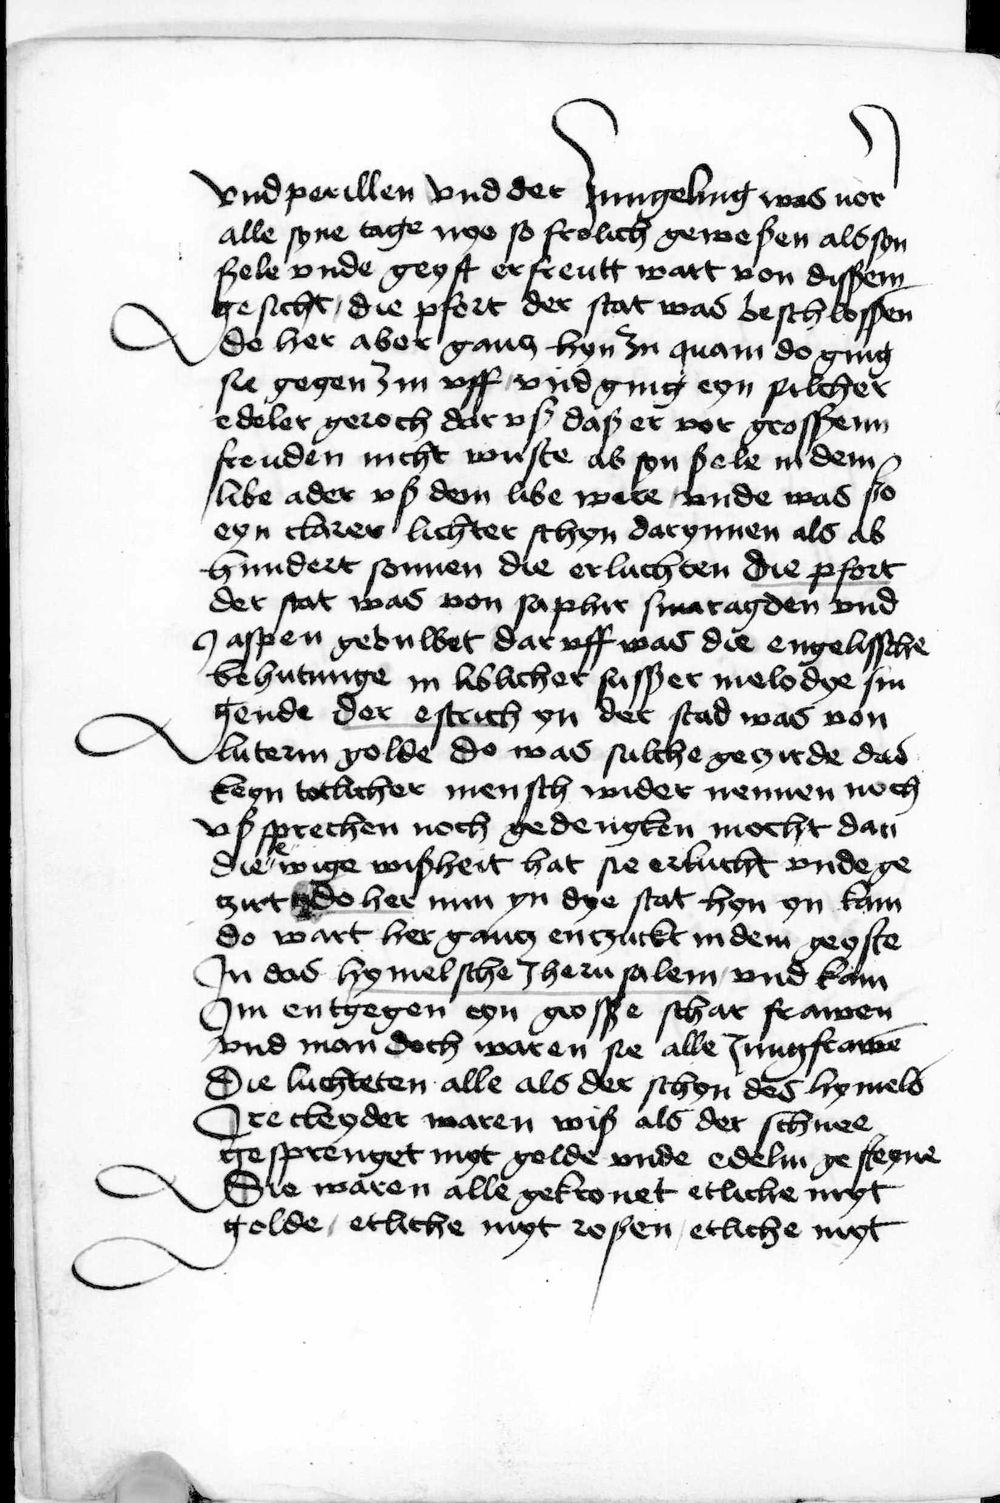 vnd perillen vnd der Jungeling was vor
alle syne tage nye so frolich geweßen als syn
ßele vnde geyst erfreutt wart von dißem
gesicht / die pfort der stat was beschloßen
do her aber gantz hyn Zu quam do ging
sie gegen Im vff / vnd ging eyn sulcher
edeler geroch dar vß daß er vor großenn
freuden nicht wuste ab syn ßele in dem
libe ader vß dem libe were / vnde was so
eyn clarer lichter schyn darynnen als ab
hundert sonnen die erluchten die pfort
der stat was von saphir smaragden vnd
Jaspen gebulbet dar vff was die engelissche
behutunge in liblicher sußer melodye sin
gende Der estrich yn der stad was von
luterm golde Do was sulche gezirde das
keyn totlicher mensch wider nennen noch
vß sprechen noch gedengken mocht dan
die ewige wißheit hat sie erlucht vnde ge
zirt do her nun yn dye stat hyn yn kam
do wart her gantz entzuckt in dem geyste
In das hymelsche Jherusalem / vnd kam
Im entgegen eyn große schar frawen
vnd man doch waren sie alle Jungfrawē
Die luchteten alle als der schyn des hymels
Ire cleyder waren wiß als der schnee
gesprenget myt golde vnde edelm gesteyne
Sie waren alle gekronet etliche myt
golde / etliche myt roßen / etliche myt